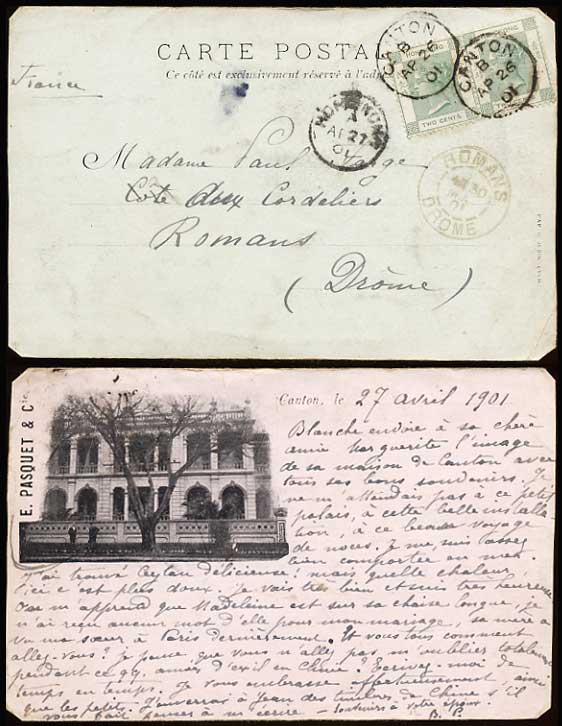 CARTE POSTALE
Ce côté est exclusivement réservé à l'adresse
France
CANTON
B
AP 26
01
CANTON
B
AP 26
01
HONG KONG
TWO CENTS
HONG KONG
A
AP 27
01
ROMANS
30
DRÔME
Madame Paul
Côte aux Cordeliers
Romans
(Drôme)
E. PASQUET & Cie
Canton, le 27 avril 1901
Blanche envoie à sa chère
amie Marguerite l'image
de sa maison de Canton avec
tous ses bons souvenirs. Je
ne m'attendais pas à ce petit
palais, à cette belle installa-
tion, à ce beau voyage
de noces. Je me suis assez
bien comportée en mer.
J'ai trouvé Ceylan délicieuse! mais quelle chaleur,
ici c'est plus doux. Je vais très bien et suis très heureuse
On m'apprend que Madeleine est sur sa chaise longue, je
n'ai reçu aucun mot d'elle pour mon mariage, sa mère a
vu ma sœur à Paris dernièrement. Et vous tous comment
allez-vous? je pense que vous n'allez pas m'oublier totalement
pendant ces qq. années d'exil en Chine? Ecrivez-moi de
temps en temps. Je vous embrasse affectueusement, ainsi
que les petits. J'enverrai à Jean des timbres de Chine s'il
vous fait penser à m'écrire - souvenirs à votre époux.
B. P.